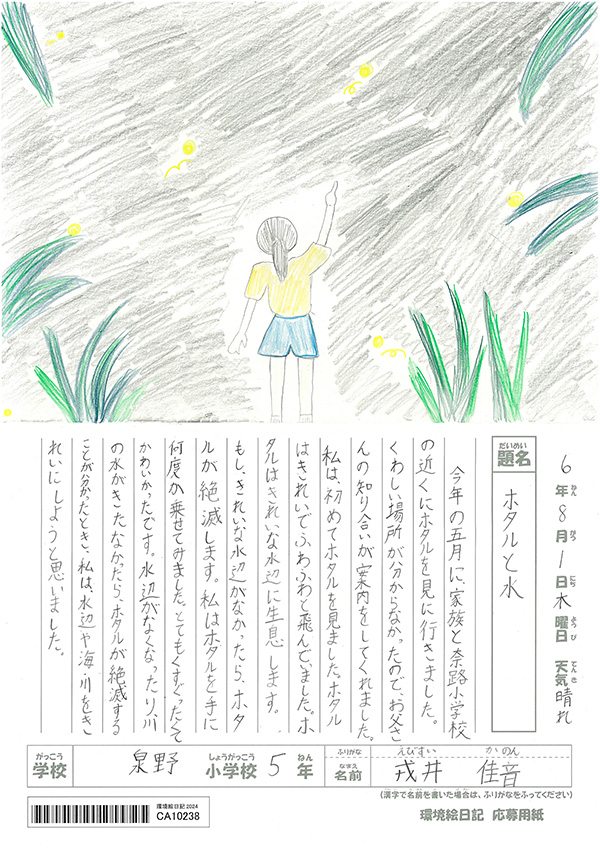 6年8月1日木曜日 天気晴れ
ねん がつ にち ようび てんき
だいめい
題名
ホタルと水
今年の五月に、家族と奈路小学校
の近くにホタルを見に行きました。
くわしい場所が分からなかったので、お父さ
んの知り合いが案内をしてくれました。
私は、初めてホタルを見ました。ホタル
はきれいでふわふわと飛んでいました。ホ
タルはきれいな水辺に生息します。
もし、きれいな水辺がなかったら、ホタ
ルが絶滅します。私はホタルを手に
何度か乗せてみました。とてもくすぐったくて
かわいかったです。水辺がなくなったり、川
の水がきたなかったら、ホタルが絶滅する
ことが分かったとき、私は、水辺や海・川をき
れいにしようと思いました。
がっこう しょうがっこう ねん
学校 泉野 小学校 5年
ふりがな えびすい かのん
なまえ
名前 戎井 佳音
(漢字で名前を書いた場合は、ふりがなをふってください)
環境絵日記 2024
CA10238
環境絵日記 応募用紙